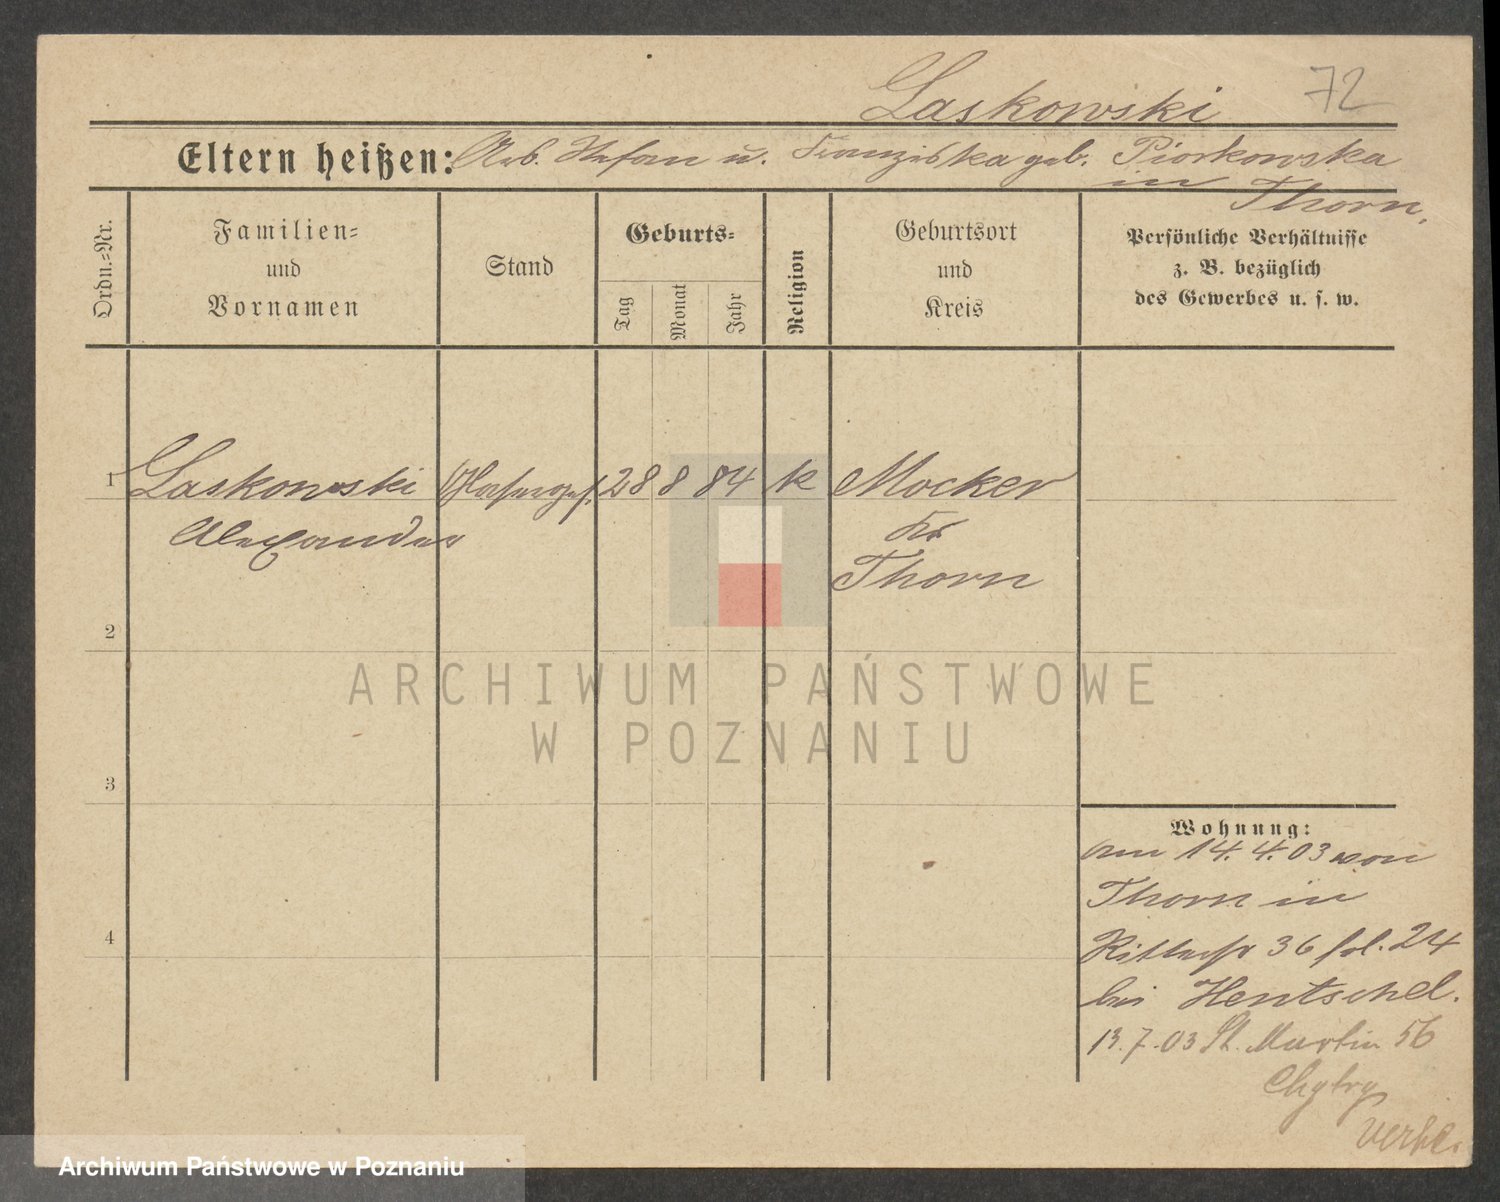 Laskowski 72
Eltern heißen: Arb. Stefan u. Franziska geb. Piorkowska
in Thorn,
Ordn.-Nr.
Familien-
und
Vornamen
Stand
Geburts-
Tag
Monat
Jahr
Religion
Geburtsort
und
Kreis
Persönliche Verhältnisse
z. B. bezüglich
des Gewerbes u. s. w.
1 Laskowski 28 8 84 k Mocker
Alexander Kr
Thorn
2
ARCHIWUM PAŃSTWOWE
W POZNANIU
3
4
Wohnung:
am 14.4.03 von
Thorn in
Ritterstr 36 fol. 24
bei Hentschel.
13.7.03 St. Martin 56
Chytry
Archiwum Państwowe w Poznaniu